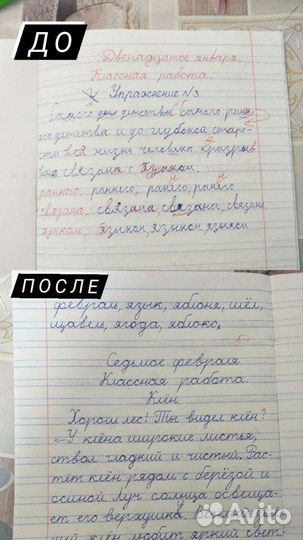 ДО
Двенадцатое января.
Классная работа.
Упражнение №3
Самого детства Самого ран
него детства и до глубокой старо
сти вся жизнь человека
вно связана с языком.
раннего. раннего, раннего, раннего
связана, связана, связана, связана
языком, языком, языком языком
ПОСЛЕ
февраль, язык, яблоня, шёл,
щавель, ягода, яблоко.
5
Седьмое февраля.
Классная работа.
Клён.
Хорош лес! Ты видел клён?
У клёна широкие листья,
ствол гладкий и чистый. Рас-
тёт клён рядом с берёзой и
осиной. Луч солнца освеща-
ет его верхушку.
клён любит яркий свет
Avito